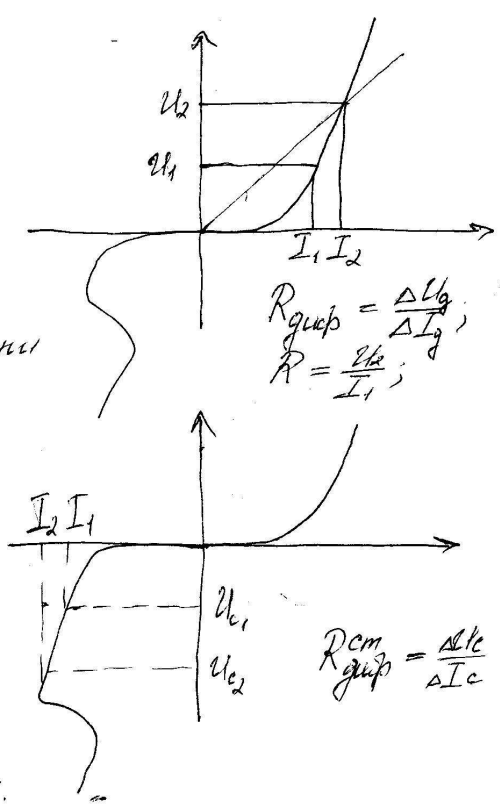 U₂
U₁
I₁ I₂
Rдиф = ΔUд/ΔIд;
R = U₂/I₁;
I₂ I₁
Uc₁
Uc₂
Rдиф^ст = ΔUc/ΔIc